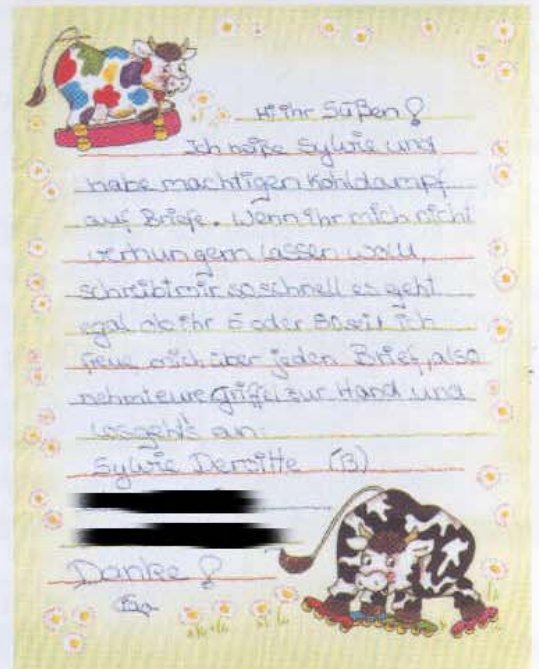 Hi ihr Süßen!
Ich heiße Sylvie und
habe machtigen Kohldampf
auf Briefe. Wenn ihr mich nicht
verhungern lassen wollt,
schreibt mir so schnell es geht
egal ob ihr 6 oder 80 seit ich
freue mich über jeden Brief, also
nehmt eure Griffel zur Hand und
losgeht's an:
Sylvie (13)
Danke!